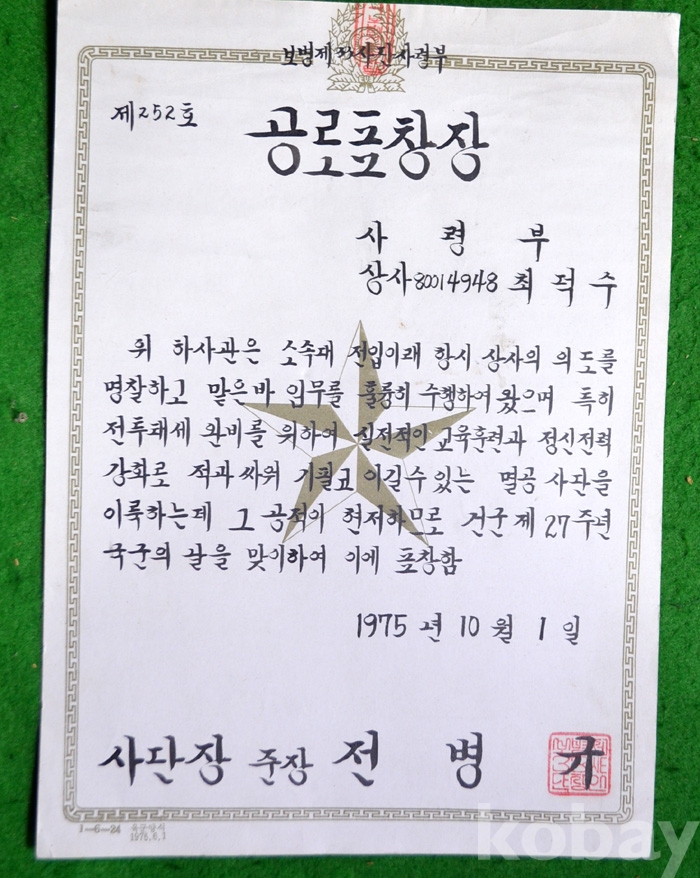 보병제33사단사령부
제252호
공로표창장
사령부
상사80014948 최덕수
위 하사관은 소속대 전입이래 항시 상사의 의도를
명찰하고 맡은바 임무를 훌륭히 수행하여 왔으며 특히
전투태세 완비를 위하여 실전적인 교육훈련과 정신전력
강화로 적과싸워 기필코 이길수 있는 멸공 사관을
이룩하는데 그 공적이 현저하므로 건군 제27주년
국군의 날을 맞이하여 이에 표창함
1975년 10월 1일
사단장 준장 전병규
1-6-24
kobay